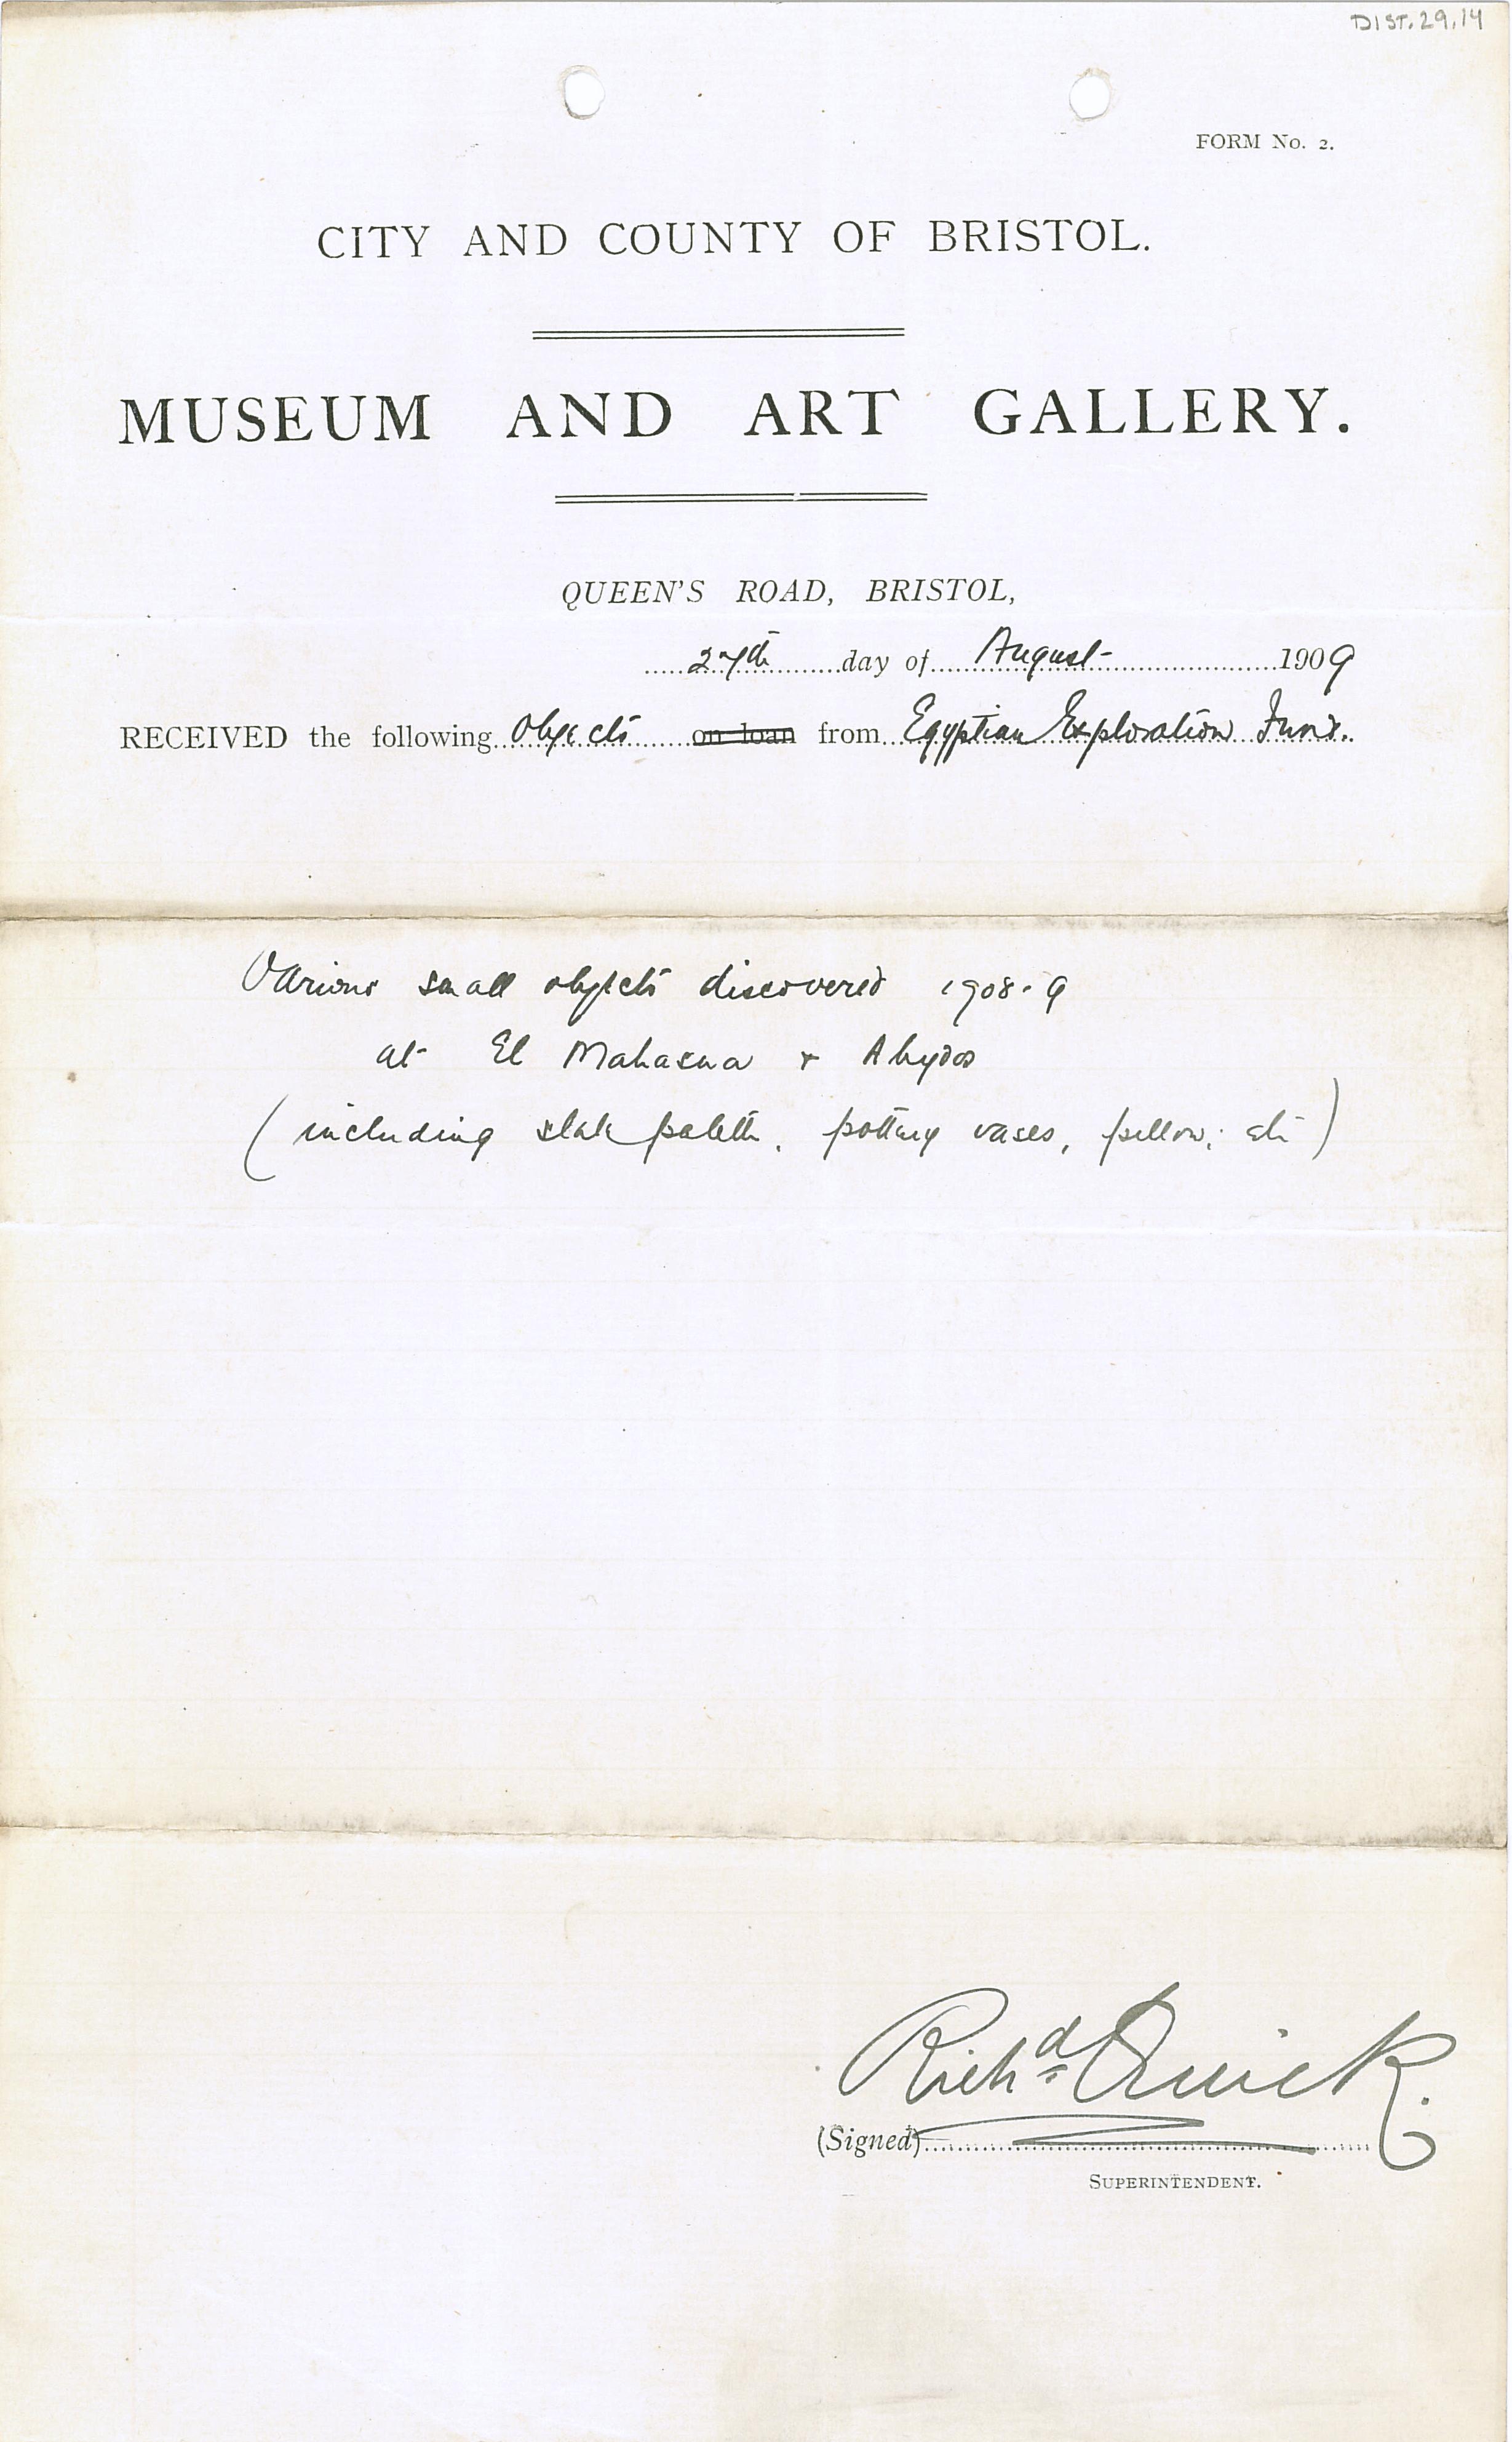 DIST.29.14
FORM No. 2.
CITY AND COUNTY OF BRISTOL.
MUSEUM AND ART GALLERY.
QUEEN'S ROAD, BRISTOL,
27th day of August 1909
RECEIVED the following Objects on loan from Egyptian Exploration Fund.
Various small objects discovered 1908-9
at El Mahasna & Abydos
(including slate palette, pottery vases, pillow, etc)
Richd Quick.
(Signed)
SUPERINTENDENT.